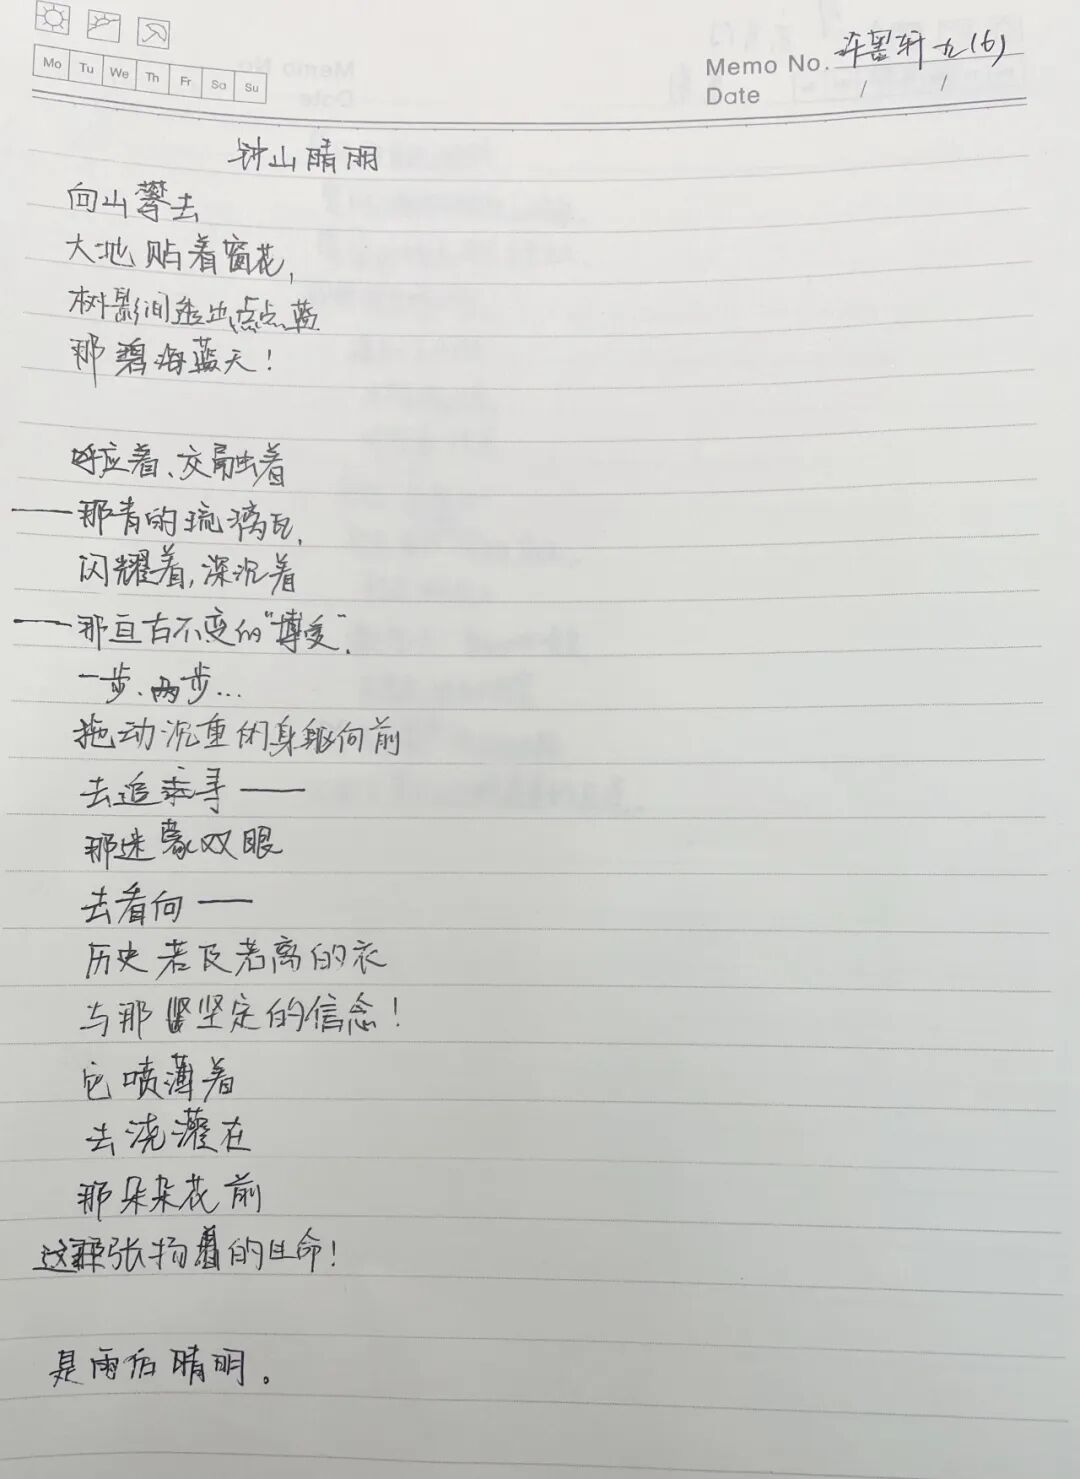 Mo Tu We Th Fr Sa Su
Memo No. 许墨轩 九(6)
Date / /
钟山晴雨
向山攀去
大地贴着窗花,
树影间透出点点蓝
那碧海蓝天!
呼应着、交融着
——那青的琉璃瓦,
闪耀着,深沉着
——那亘古不变的“博爱”.
一步、两步...
拖动沉重的身躯向前
去追寻——
那迷蒙双眼
去看向——
历史若及若离的衣
与那坚定的信念!
它喷薄着
去浇灌在
那朵朵花前
这张扬着的生命!
是雨后晴明。